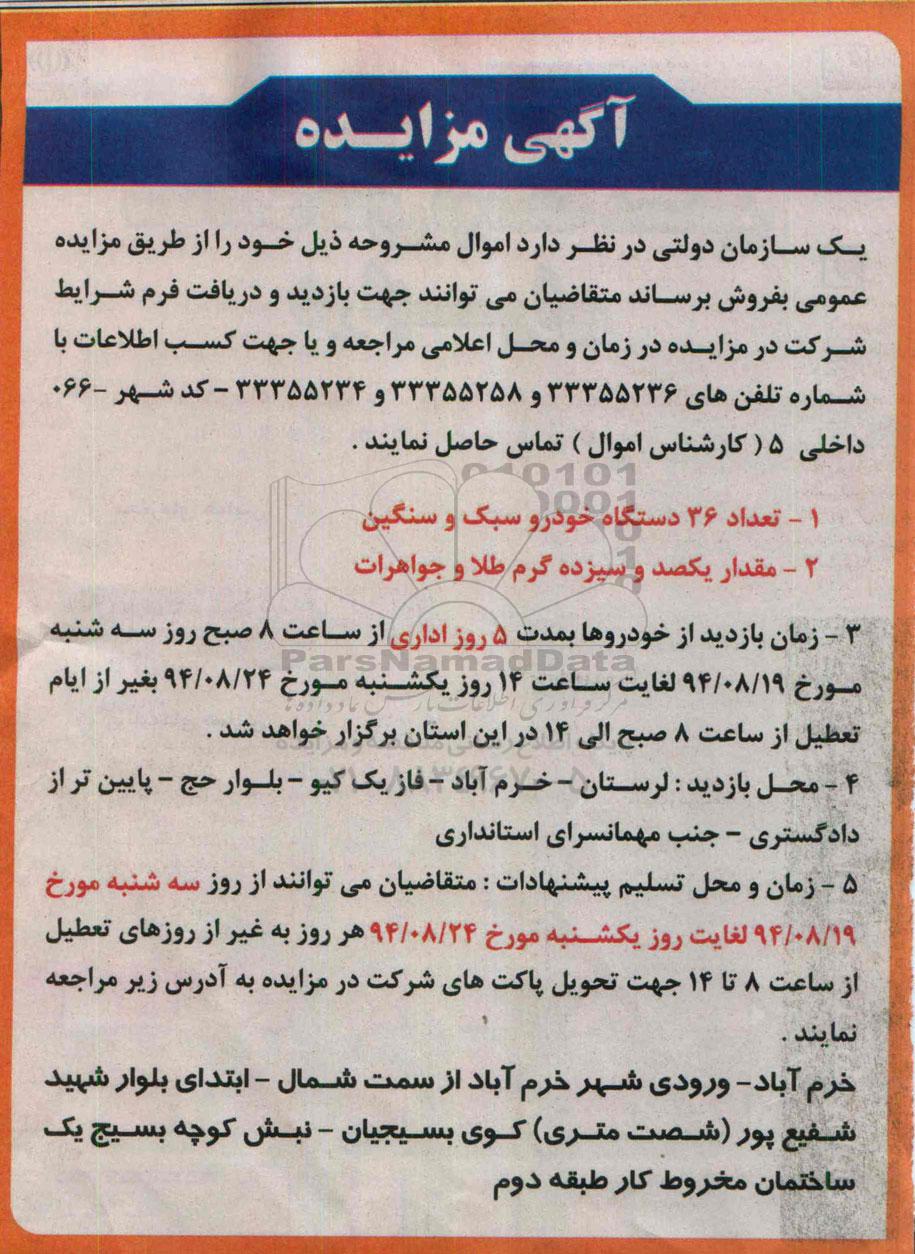 آگهی مزایده
یک سازمان دولتی در نظر دارد اموال مشروحه ذیل خود را از طریق مزایده
عمومی بفروش برساند متقاضیان می توانند جهت بازدید و دریافت فرم شرایط
شرکت در مزایده در زمان و محل اعلامی مراجعه و یا جهت کسب اطلاعات با
شماره تلفن های ۳۳۳۵۵۲۳۶ و ۳۳۳۵۵۲۵۸ و ۳۳۳۵۵۲۳۴ – کد شهر –۰۶۶
داخلی ۵ ( کارشناس اموال ) تماس حاصل نمایند .
۱ – تعداد ۳۶ دستگاه خودرو سبک و سنگین
۲ – مقدار یکصد و سیزده گرم طلا و جواهرات
۳ – زمان بازدید از خودروها بمدت ۵ روز اداری از ساعت ۸ صبح روز سه شنبه
ParsNamadData
مورخ ۹۴/۰۸/۱۹ لغایت ساعت ۱۴ روز یکشنبه مورخ ۹۴/۰۸/۲۴ بغیر از ایام
تعطیل از ساعت ۸ صبح الی ۱۴ در این استان برگزار خواهد شد .
۴ – محل بازدید : لرستان – خرم آباد – فاز یک کیو – بلوار حج – پایین تر از
دادگستری – جنب مهمانسرای استانداری
۵ – زمان و محل تسلیم پیشنهادات : متقاضیان می توانند از روز سه شنبه مورخ
۹۴/۰۸/۱۹ لغایت روز یکشنبه مورخ ۹۴/۰۸/۲۴ هر روز به غیر از روزهای تعطیل
از ساعت ۸ تا ۱۴ جهت تحویل پاکت های شرکت در مزایده به آدرس زیر مراجعه
نمایند .
خرم آباد– ورودی شهر خرم آباد از سمت شمال – ابتدای بلوار شهید
شفیع پور (شصت متری) کوی بسیجیان – نبش کوچه بسیج یک
ساختمان مخروط کار طبقه دوم